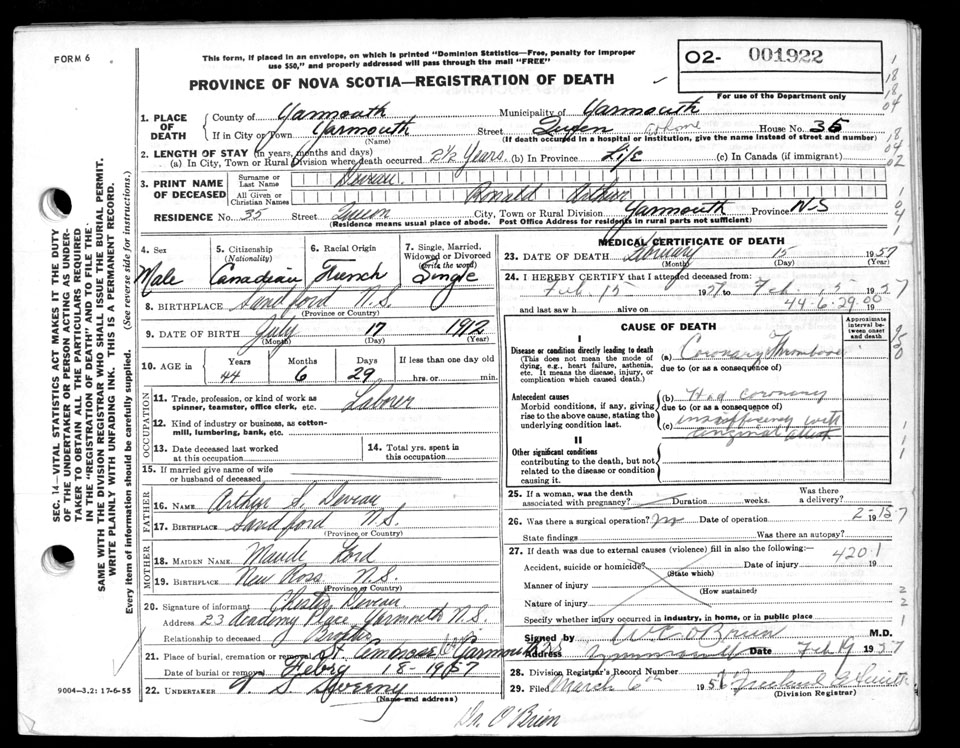 FORM 6
This form, if placed in an envelope, on which is printed "Dominion Statistics—Free, penalty for improper
use $50," and properly addressed will pass through the mail "FREE"
PROVINCE OF NOVA SCOTIA—REGISTRATION OF DEATH
O2- 001922
For use of the Department only
1. PLACE OF DEATH
County of Yarmouth Municipality of Yarmouth
If in City or Town Yarmouth Street Queen at home House No. 35
(Name) (If death occurred in a hospital or institution, give the name instead of street and number)
2. LENGTH OF STAY (in years, months and days)
(a) In City, Town or Rural Division where death occurred 2½ Years (b) In Province Life (c) In Canada (if immigrant)
3. PRINT NAME OF DECEASED
Surname or Last Name Deveau
All Given or Christian Names Ronald Arthur
RESIDENCE No. 35 Street Queen City, Town or Rural Division Yarmouth Province N-S
(Residence means usual place of abode. Post Office Address for residents in rural parts not sufficient)
4. Sex Male
5. Citizenship (Nationality) Canadian
6. Racial Origin French
7. Single, Married, Widowed or Divorced (Write the word) Single
8. BIRTHPLACE Sandford N.S.
(Province or Country)
9. DATE OF BIRTH July 17 1912
(Month) (Day) (Year)
10. AGE in Years 44 Months 6 Days 29 If less than one day old
hrs. or min.
OCCUPATION
11. Trade, profession, or kind of work as spinner, teamster, office clerk, etc. Laborer
12. Kind of industry or business, as cotton-mill, lumbering, bank, etc.
13. Date deceased last worked at this occupation
14. Total yrs. spent in this occupation
15. If married give name of wife or husband of deceased
FATHER
16. NAME Arthur S. Deveau
17. BIRTHPLACE Sandford N.S.
(Province or Country)
MOTHER
18. MAIDEN NAME Maude Lord
19. BIRTHPLACE New Ross N.S.
(Province or Country)
20. Signature of informant Chester Deveau
Address 23 Academy Place Yarmouth N.S.
Relationship to deceased Brother
21. Place of burial, cremation or removal St Ambrose Yarmouth
Date of burial or removal Febry 18-1957
22. UNDERTAKER
(Name and address)
MEDICAL CERTIFICATE OF DEATH
23. DATE OF DEATH February 15 1957
(Month) (Day) (Year)
24. I HEREBY CERTIFY that I attended deceased from:
Feb. 15 1957 to Feb. 15 1957
44-6-29.00
and last saw h alive on 19
CAUSE OF DEATH
Approximate interval between onset and death
I
Disease or condition directly leading to death
(This does not mean the mode of dying, e.g., heart failure, asthenia, etc. It means the disease, injury, or complication which caused death.)
(a) Coronary Thrombosis
due to (or as a consequence of)
Antecedent causes
Morbid conditions, if any, giving rise to the above cause, stating the underlying condition last.
(b) Had coronary
due to (or as a consequence of)
(c) insufficiency with
anginal attack
II
Other significant conditions
contributing to the death, but not related to the disease or condition causing it.
25. If a woman, was the death associated with pregnancy? Duration weeks. Was there a delivery?
2-15-7
26. Was there a surgical operation? no Date of operation 19
State findings Was there an autopsy?
27. If death was due to external causes (violence) fill in also the following:—
420.1
Accident, suicide or homicide? Date of injury 19
(State which)
Manner of injury
(How sustained)
Nature of injury
Specify whether injury occurred in industry, in home, or in public place
Signed by W C O'Brien M.D.
Address Yarmouth Date Feb 19 1957
28. Division Registrar's Record Number
29. Filed March 6th 1956
(Division Registrar)
Dr. O'Brien
9004-3.2: 17-6-55
SEC. 14—VITAL STATISTICS ACT MAKES IT THE DUTY
OF THE UNDERTAKER OR PERSON ACTING AS UNDER-
TAKER TO OBTAIN ALL THE PARTICULARS REQUIRED
IN THE "REGISTRATION OF DEATH" AND TO FILE THE
SAME WITH THE DIVISION REGISTRAR WHO SHALL ISSUE THE BURIAL PERMIT.
WRITE PLAINLY WITH UNFADING INK. THIS IS A PERMANENT RECORD.
Every item of information should be carefully supplied. (See reverse side for instructions.)